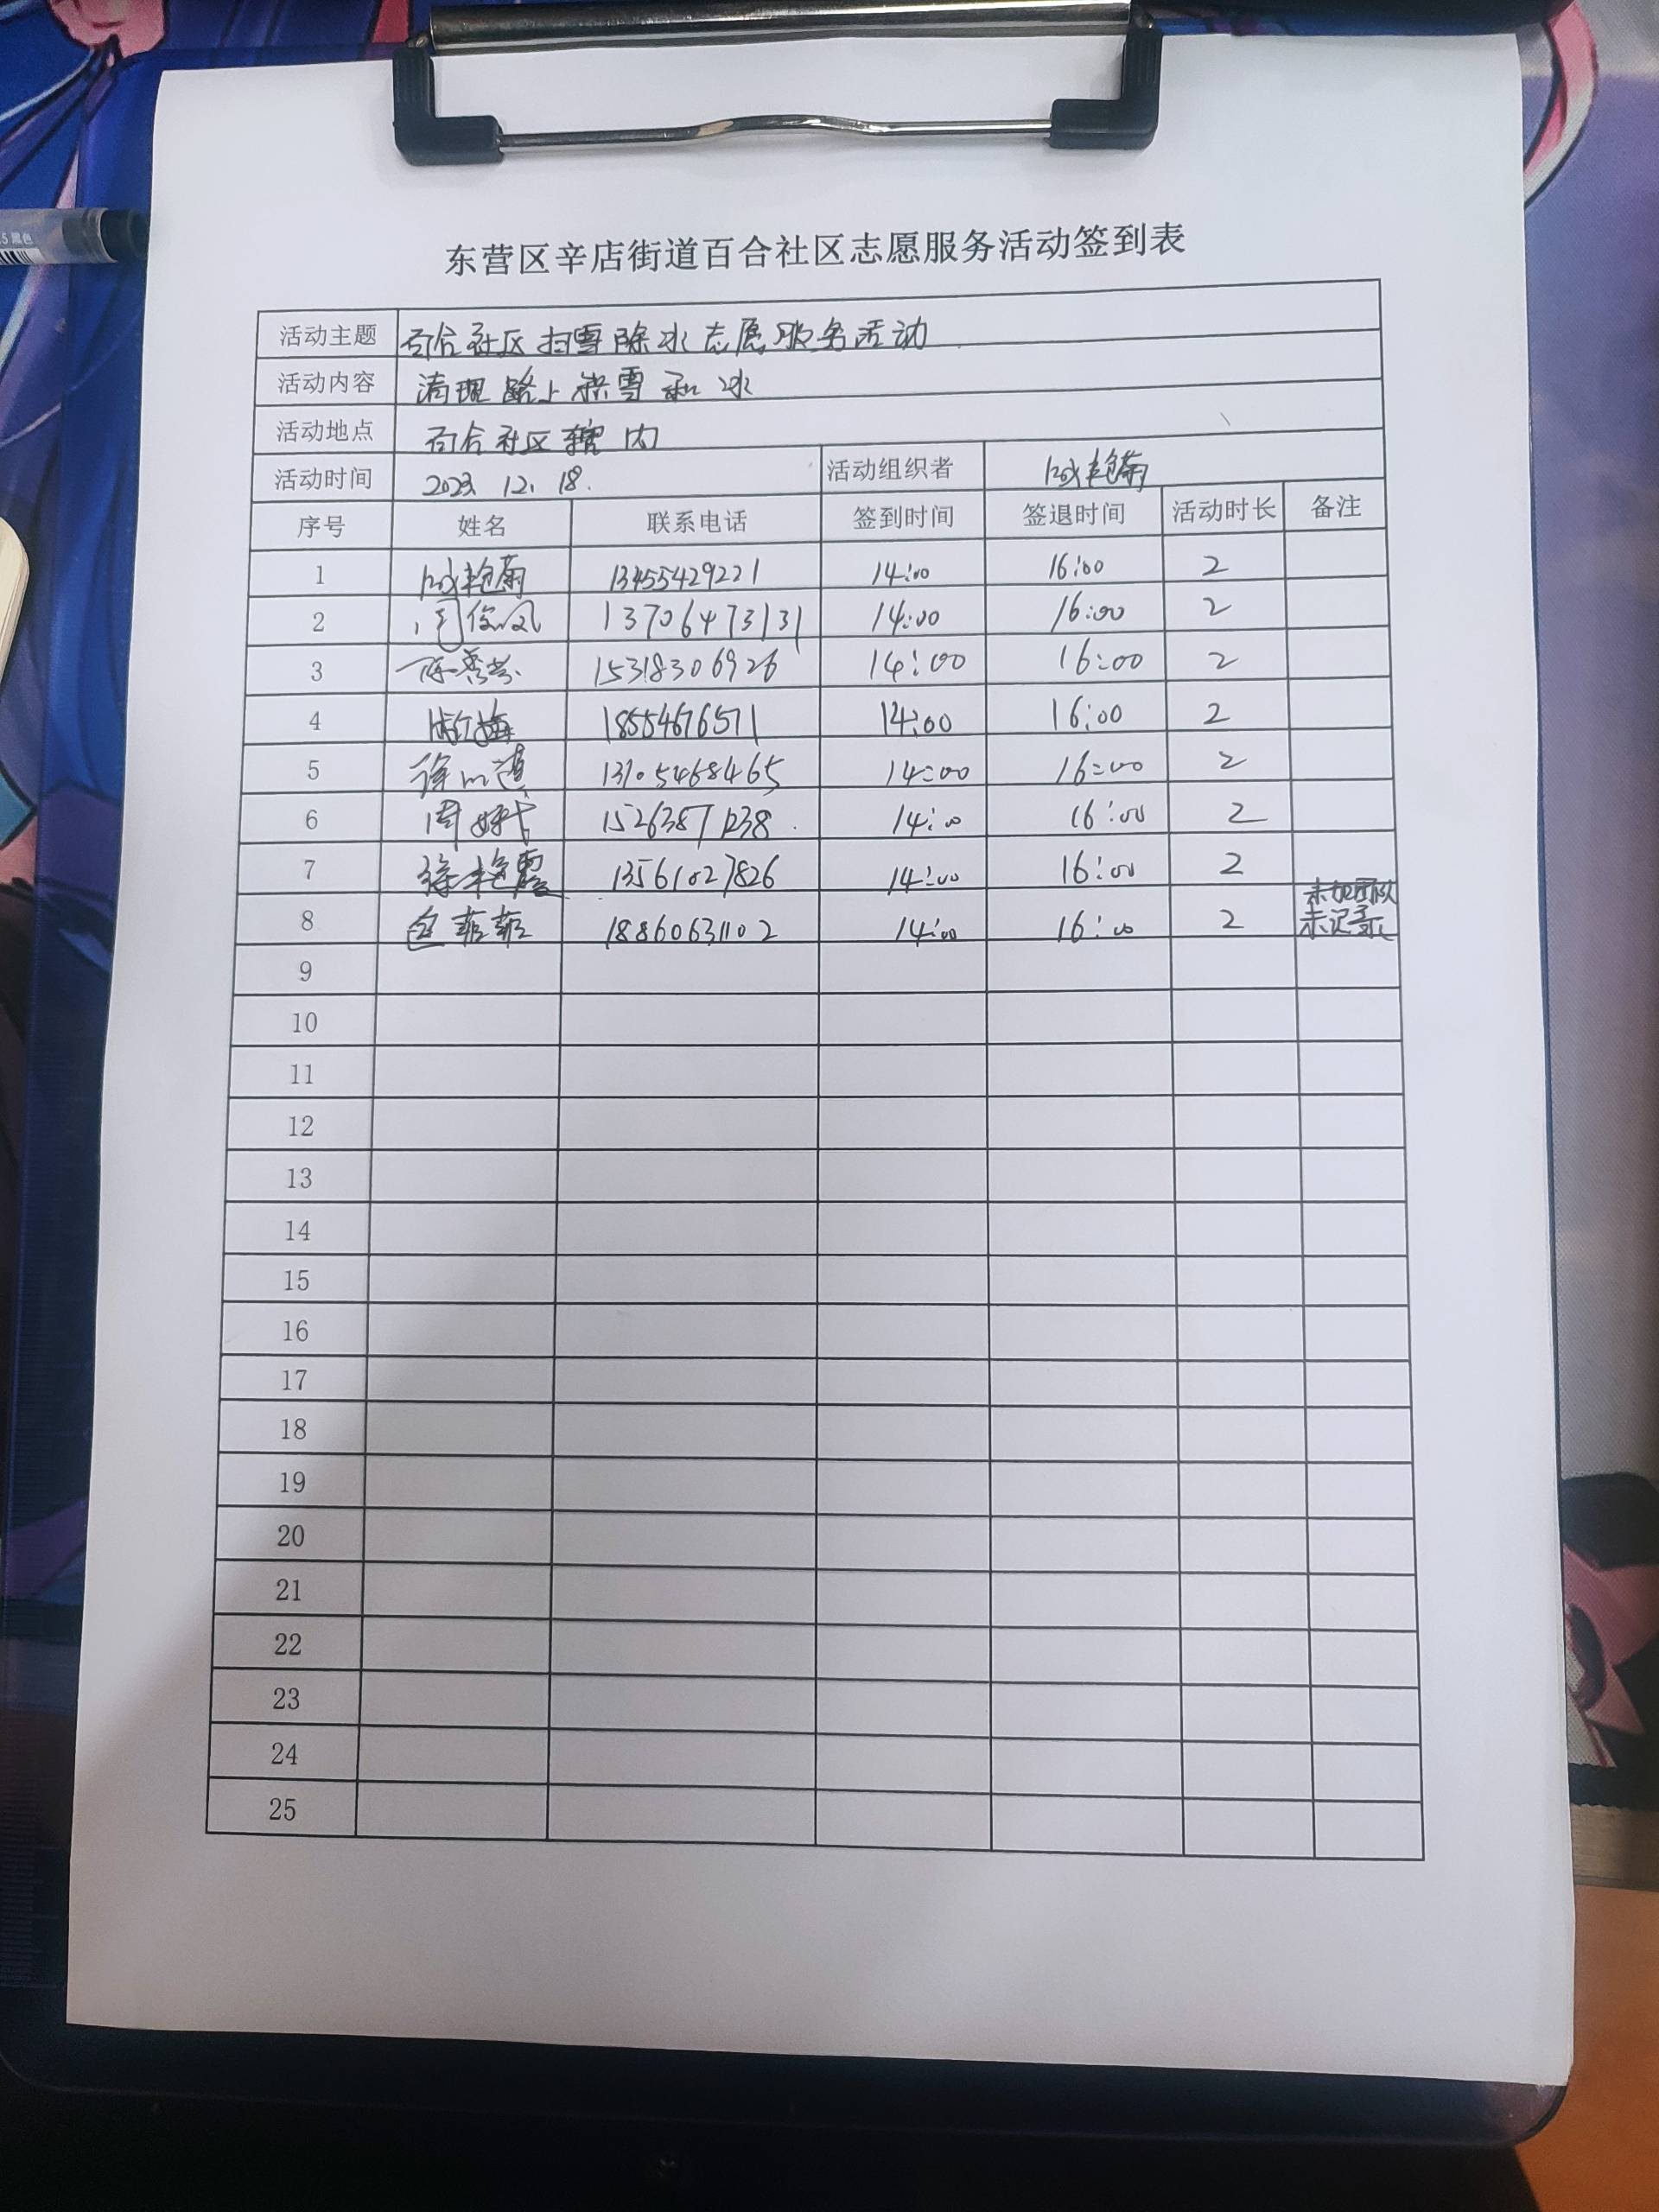 5 黑色
东营区辛店街道百合社区志愿服务活动签到表
活动主题 百合社区扫雪除冰志愿服务活动
活动内容 清理路上积雪和冰
活动地点 百合社区辖内
活动时间 2023. 12. 18. 活动组织者
序号 姓名 联系电话 签到时间 签退时间 活动时长 备注
1 13455429221 14:00 16:00 2
2 13706473131 14:00 16:00 2
3 15318306926 14:00 16:00 2
4 18554676571 14:00 16:00 2
5 13105468465 14:00 16:00 2
6 15263871238 14:00 16:00 2
7 徐艳霞 13561027826 14:00 16:00 2
8 菲菲 18860631102 14:00 16:00 2 未加团队
未记录
9
10
11
12
13
14
15
16
17
18
19
20
21
22
23
24
25